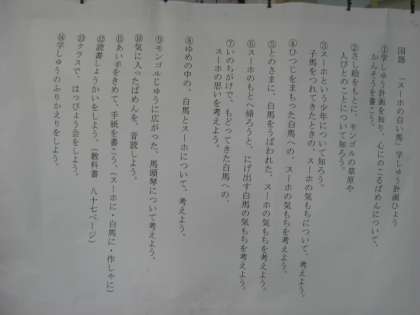 国語 「スーホの白い馬」学しゅう計画ひょう
①学しゅう計画を知り、心にのこるばめんについて、
かんそうを書こう。
②さし絵をもとに、モンゴルの草原や
人びとのことについて知ろう。
③スーホという少年について知ろう。
子馬をつれてきたときの、スーホの気もちについて、考えよう。
④ひつじをまもった白馬への、スーホの気もちを考えよう。
⑤とのさまに、白馬をうばわれた、スーホの気もちを考えよう。
⑥スーホのもとへ帰ろうと、にげ出す白馬の気もちを考えよう。
⑦いのちがけで、もどってきた白馬への、
スーホの思いを考えよう。
⑧ゆめの中の、白馬とスーホについて、考えよう。
⑨モンゴルじゅうに広がった、馬頭琴について考えよう。
⑩気に入ったばめんを、音読しよう。
⑪あい手をきめて、手紙を書こう。(スーホに・白馬に・作しゃに)
⑫読書しょうかいをしよう。(教科書 八十七ページ)
⑬クラスで、はっぴょう会をしよう。
⑭学しゅうのふりかえりをしよう。